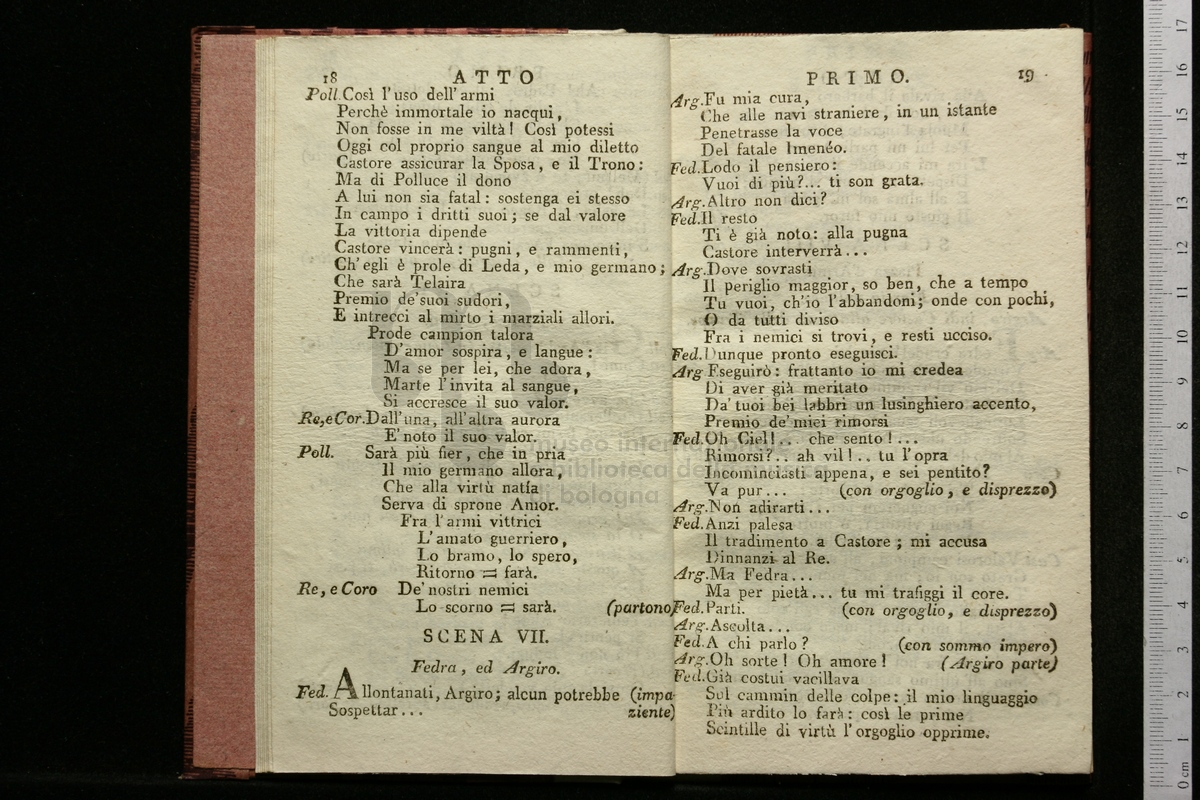 18 ATTO
Poll. Così l'uso dell'armi
Perchè immortale io nacqui,
Non fosse in me viltà! Così potessi
Oggi col proprio sangue al mio diletto
Castore assicurar la Sposa, e il Trono:
Ma di Polluce il dono
A lui non sia fatal: sostenga ei stesso
In campo i dritti suoi; se dal valore
La vittoria dipende
Castore vincerà: pugni, e rammenti,
Ch'egli è prole di Leda, e mio germano;
Che sarà Telaira
Premio de'suoi sudori,
E intrecci al mirto i marziali allori.
Prode campion talora
D'amor sospira, e langue:
Ma se per lei, che adora,
Marte l'invita al sangue,
Si accresce il suo valor.
Re, e Cor. Dall'una, all'altra aurora
E' noto il suo valor.
Poll. Sarà più fier, che in pria
Il mio germano allora,
Che alla virtù natía
Serva di sprone Amor.
Fra l'armi vittrici
L'amato guerriero,
Lo bramo, lo spero,
Ritorno = farà.
Re, e Coro De' nostri nemici
Lo scorno = sarà. (partono)
SCENA VII.
Fedra, ed Argiro.
Fed. Allontanati, Argiro; alcun potrebbe (impa-
Sospettar... ziente)
PRIMO. 19
Arg. Fu mia cura,
Che alle navi straniere, in un istante
Penetrasse la voce
Del fatale Imenéo.
Fed. Lodo il pensiero:
Vuoi di più?... ti son grata.
Arg. Altro non dici?
Fed. Il resto
Ti è già noto: alla pugna
Castore interverrà...
Arg. Dove sovrasti
Il periglio maggior, so ben, che a tempo
Tu vuoi, ch'io l'abbandoni; onde con pochi,
O da tutti diviso
Fra i nemici si trovi, e resti ucciso.
Fed. Dunque pronto eseguisci.
Arg Eseguirò: frattanto io mi credea
Di aver già meritato
Da' tuoi bei labbri un lusinghiero accento,
Premio de' miei rimorsi
Fed. Oh Ciel!.. che sento!...
Rimorsi?.. ah vil!.. tu l'opra
Incominciasti appena, e sei pentito?
Va pur... (con orgoglio, e disprezzo)
Arg. Non adirarti...
Fed. Anzi palesa
Il tradimento a Castore; mi accusa
Dinnanzi al Re.
Arg. Ma Fedra...
Ma per pietà... tu mi trafiggi il core.
Fed. Parti. (con orgoglio, e disprezzo)
Arg. Ascolta...
Fed. A chi parlo? (con sommo impero)
Arg. Oh sorte! Oh amore! (Argiro parte)
Fed. Già costui vacillava
Sul cammin delle colpe: il mio linguaggio
Più ardito lo farà: così le prime
Scintille di virtù l'orgoglio opprime.
museo internazionale
biblioteca della musica
di bologna
0 cm 1 2 3 4 5 6 7 8 9 10 11 12 13 14 15 16 17